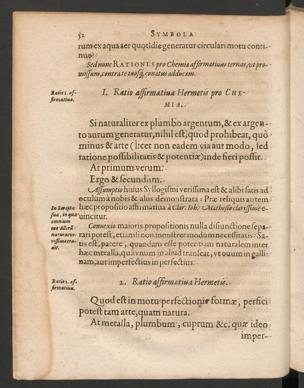 52 SYMBOLA
rum ex aqua aer quotidie generatur circulari motu conti-
nuo.
Sed nunc RATIONES pro Chemia affirmationis ternas, ut pro-
missum, contra te tuosq́; conatus adducam.
Ratio 1. af-
firmativa.
1. Ratio affirmativa Hermetis pro CHE-
MIA.
Si naturaliter ex plumbo argentum, & ex argen-
to aurum generatur, nihil est, quod prohibeat, quò
minus & arte (licet non eadem via aut modo, sed
ratione possibilitatis & potentiæ) inde fieri possit.
At primum verum.
Ergo & secundum.
Assumptio huius Syllogismi verissima est & alibi satis ad
oculum à nobis & aliis demonstrata: Præ reliquis autem
hæc propositio affirmativa à Clar. Ioh: Mathesio clarissimè e-
vincitur.
Connexio maioris propositionis nulla disiunctione sepa-
rari potest, etiamsi non monstret modum necessitatis: Sa-
tis est, parere, quandam esse potentiam naturalem inter
hæc metalla, qua unum in aliud transeat, vt ouum in galli-
nam, aut imperfectius in perfectius.
Ratio 2. af-
firmativa.
2. Ratio affirmativa Hermetis.
Quod est in motu perfectionis formæ, perfici
potest tam arte, quam natura.
At metalla, plumbum, cuprum &c. quæ ideo
imper-